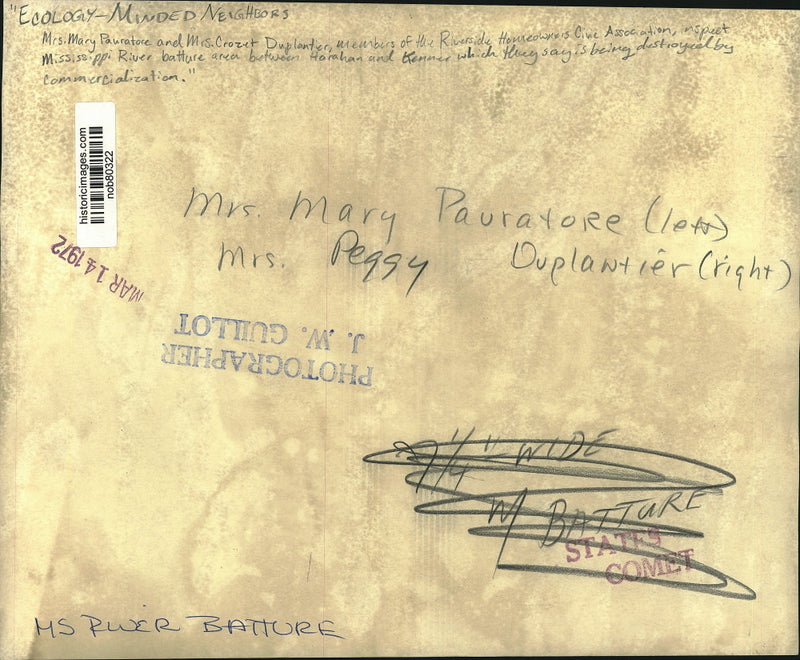 "Ecology-Minded Neighbors
Mrs. Mary Pauratore and Mrs. Crozet Duplantier, members of the Riverside Homeowners Civic Association, inspect
Mississippi River batture area between Harahan and Kenner which they say is being destroyed by
commercialization."
historicimages.com
nob80322
MAR 14 1972
Mrs. Mary Pauratore (left)
Mrs. Peggy Duplantier (right)
PHOTOGRAPHER
J. W. GUILLOT
1/4" WIDE
W/ BATTURE
STATES
COMET
MS RIVER BATTURE